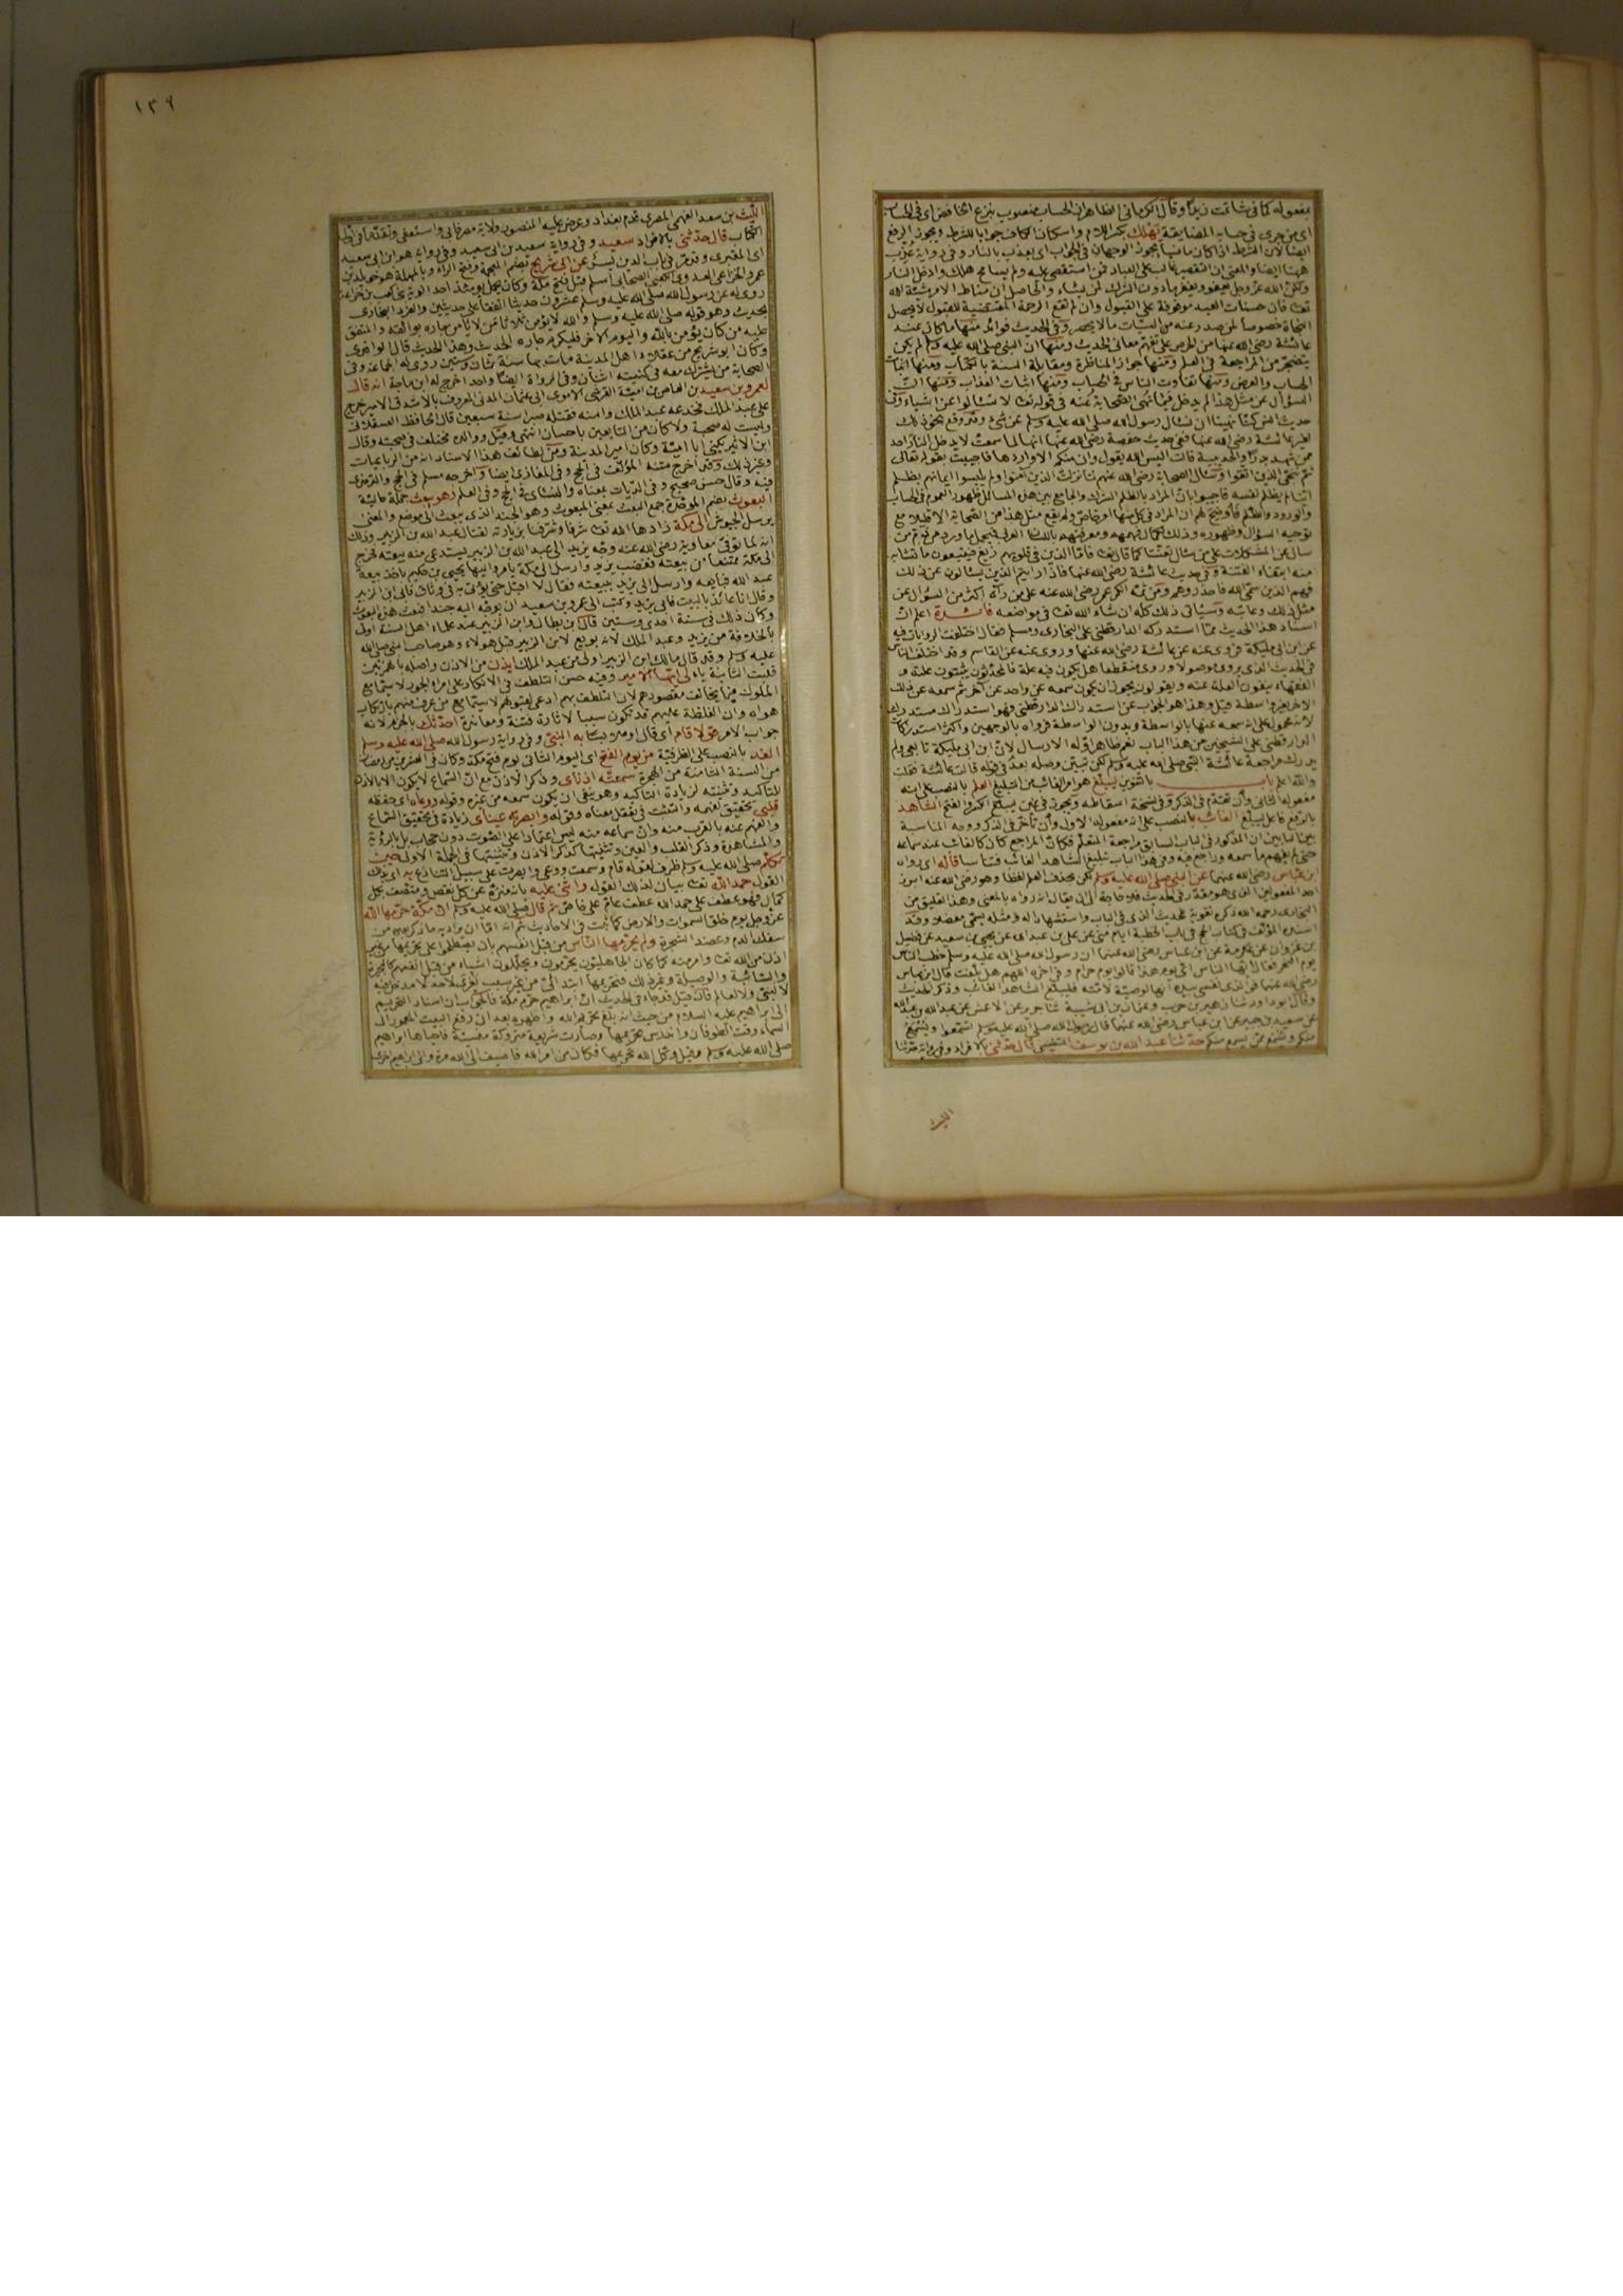 بمفعوله كما في شاتمت زيدا وقال الكرماني الظاهر ان الحساب منصوب بنزع الخافض اى في الحساب
اى من جرى في حسابه المضايقة يهلك بكسر اللام واسكان الكاف جوابا للشرط ويجوز الرفع
ايضا لان الشرط اذا كان ماضيا يجوز الوجهان في الجواب اى يعذب بالنار وفي رواية عذب
ههنا ايضا والمعنى ان التقصير غالب على العباد فمن استقصى عليه ولم يسامح هلك وادخل النار
ولكن الله عز وجل يعفو ويغفر ما دون الشرك لمن يشاء والحاصل ان مناط الامر مشيئة الله
تعالى فان حسنات العبد موقوفة على القبول وان لم تقع الرحمة المقتضية للقبول لا يحصل
النجاة خصوصا لمن صدر عنه من السيئات ما لا يحصر وفي الحديث فوائد منها ما كان عند
عائشة رضى الله عنها من الحرص على تفهم معاني الحديث ومنها ان النبي صلى الله عليه وسلم لم يكن
يتضجر من المراجعة في العلم ومنها جواز المناظرة ومقابلة السنة بالكتاب ومنها اثبات
الحساب والعرض ومنها تفاوت الناس في الحساب ومنها اثبات العذاب ومنها ان
السؤال عن مثل هذا لم يدخل فيما نهى الصحابة عنه في قوله تعالى لا تسألوا عن اشياء وفي
حديث انس كنا نهينا ان نسأل رسول الله صلى الله عليه وسلم عن شيء وقد وقع نحو ذلك
لغير عائشة رضى الله عنها ففي حديث حفصة رضى الله عنها انها لما سمعت لا يدخل النار احد
ممن شهد بدرا والحديبية قالت اليس الله يقول وان منكم الا واردها فاجيبت بقوله تعالى
ثم ننجى الذين اتقوا وسأل الصحابة رضى الله عنهم لما نزلت الذين آمنوا ولم يلبسوا ايمانهم بظلم
اينا لم يظلم نفسه فاجيبوا بان المراد بالظلم الشرك والجامع بين هذه المسائل ظهور العموم في الحساب
والورود والظلم فاوضح لهم ان المراد في كل منها امر خاص ولم يقع مثل هذا من الصحابة الا قليلا مع
توجيه السؤال وظهوره وذلك لكمال فهمهم ومعرفتهم باللسان العربي فيحمل ما ورد من ذم من
سأل عن المشكلات على من سأل تعنتا كما قال تعالى فاما الذين في قلوبهم زيغ فيتبعون ما تشابه
منه ابتغاء الفتنة وفي حديث عائشة رضى الله عنها فاذا رايتم الذين يسألون عن ذلك
فهم الذين سمى الله فاحذروهم ومن ثمة انكر عمر رضى الله عنه على من رآه اكثر من السؤال عن
مثل ذلك وعاتبه وسيأتي ذلك كله ان شاء الله تعالى في مواضعه فائدة اعلم ان
اسناد هذا الحديث مما استدركه الدارقطني على البخاري ومسلم فقال اختلفت الروايات فيه
عن ابن ابي مليكة فروى عنه عن عائشة رضى الله عنها وروى عنه عن القاسم وقد اختلف الناس
في الحديث الذي يروى موصولا وروى منقطعا هل يكون فيه علة فالمحدثون يثبتون علته و
الفقهاء ينفون العلة عنه ويقولون يجوز ان يكون سمعه عن واحد عن آخر ثم سمعه عن ذلك
الاخر بغير واسطة قيل وهذا هو الجواب عن استدراك الدارقطني وهو استدراك مستدرك
لانه محمول على انه سمعه عنها بالواسطة وبدون الواسطة فرواه بالوجهين واكثر استدراكات
الدارقطني على الشيخين من هذا الباب نعم ظاهر قوله الارسال لان ابن ابي مليكة تابعي ولم
يدرك مراجعة عائشة النبي صلى الله عليه وسلم لكن تبين وصله بعد في قوله قالت عائشة فقلت
والله اعلم باب بالتنوين ليبلغ هو امر الغائب من التبليغ العلم بالنصب على انه
مفعوله الثاني وان تقدم في الذكر وفي نسخة اسقاطه ويجوز في غين ليبلغ الكسر والفتح الشاهد
بالرفع فاعل ليبلغ الغائب بالنصب على انه مفعوله الاول وان تأخر في الذكر ووجه المناسبة
بين البابين ان المذكور في الباب السابق مراجعة المتعلم فكان المراجع كان كالغائب عند سماعه
حتى لم يفهم ما سمعه وراجع فيه وفي هذا الباب تبليغ الشاهد الغائب فتناسبا قاله اى رواه
ابن عباس رضى الله عنهما عن النبي صلى الله عليه وسلم لكن بحذف العلم لفظا وهو رضى الله عنه ابرز
احد المفعولين الذي هو مقدر في الحديث فلا حاجة الى ان يقال انه رواه بالمعنى وهذا التعليق من
البخاري رحمه الله ذكره تقوية للحديث الذي في الباب واستشهادا له ومثله يسمى معضلا وقد
اسنده المؤلف في كتاب الحج في باب الخطبة ايام منى عن علي بن عبد الله عن يحيى بن سعيد عن فضيل
بن غزوان عن عكرمة عن ابن عباس رضى الله عنهما ان رسول الله صلى الله عليه وسلم خطب الناس
يوم النحر فقال ايها الناس اى يوم هذا قالوا يوم حرام وفي آخره اللهم هل بلغت قال ابن عباس
رضى الله عنهما فوالذي نفسى بيده انها لوصيته لامته فليبلغ الشاهد الغائب وذكر الحديث
وقال ابو داود ثنا زهير بن حرب وعثمان بن ابي شيبة ثنا جرير عن الاعمش عن عبد الله بن عبد الله
عن سعيد بن جبير عن ابن عباس رضى الله عنهما قال قال رسول الله صلى الله عليه وسلم تسمعون ويسمع
منكم ويسمع ممن يسمع منكم حدثنا عبد الله بن يوسف التنيسي قال حدثني بالافراد وفي رواية حدثنا
الليث
١٣٩
الليث بن سعد الفهمي المصري قدم بغداد وعرض عليه المنصور ولاية مصر فابى واستعفى وتقدم في
الكتاب قال حدثني بالافراد سعيد وفي رواية سعيد بن ابي سعيد وفي رواية هو ابن ابي سعيد
اى المقبري وقد مر في باب الدين يسر عن ابي شريح بضم المعجمة وفتح الراء وبالمهملة هو خويلد بن
عمرو الخزاعي العدوي الكعبي الصحابي اسلم قبل فتح مكة وكان يحمل يومئذ احد الوية بني كعب بن خزاعة
روى له عن رسول الله صلى الله عليه وسلم عشرون حديثا اتفقا على حديثين وانفرد البخاري
بحديث وهو قوله صلى الله عليه وسلم والله لا يؤمن ثلاثا من لا يأمن جاره بوائقه والمتفق
عليه من كان يؤمن بالله واليوم الآخر فليكرم جاره الحديث وهذا الحديث قال الواقدي
وكان ابو شريح من عقلاء اهل المدينة مات بها سنة ثمان وستين روى له الجماعة وفي
الصحابة من يشترك معه في كنيته اثنان وفي الرواة ايضا واحد اخرج له ابن ماجة انه قال
لعمرو بن سعيد بن العاص بن امية القرشي الاموي ابي عثمان المدني المعروف بالاشدق الامير خرج
على عبد الملك فخدعه عبد الملك وامنه فقتله صبرا سنة سبعين قال الحافظ العسقلاني
وليست له صحبة ولا كان من التابعين باحسان انتهى وقيل ووالده مختلف في صحبته وقال
ابن الاثير يكنى ابا امية وكان امير المدينة ومن لطائف هذا الاسناد انه من الرباعيات
وغير ذلك وقد اخرج متنه المؤلف في الحج وفي المغازي ايضا واخرجه مسلم في الحج والترمذي
فيه وقال حسن صحيح وفي الديات بمعناه والنسائي في الحج وفي العلم وهو يبعث جملة حالية
البعوث بضم الموحدة جمع البعث بمعنى المبعوث وهو الجند الذي يبعث الى موضع والمعنى
يرسل الجيوش الى مكة زادها الله تعالى شرفا وشرفنا بزيارته لقتال عبد الله بن الزبير وذلك
انه لما توفي معاوية رضى الله عنه وجه يزيد الى عبد الله بن الزبير يستدعى منه بيعته فخرج
الى مكة ممتنعا من بيعته فغضب يزيد وارسل الى مكة يأمر واليها يحيى بن حكيم باخذ بيعة
عبد الله فبايعه وارسل الى يزيد ببيعته فقال لا اقبل حتى يؤتى به في وثاق فابى ابن الزبير
وقال انا عائذ بالبيت فابى يزيد وكتب الى عمرو بن سعيد ان يوجه اليه جندا فبعث هذه البعوث
وكان ذلك في سنة احدى وستين قال ابن بطال وابن الزبير عند علماء اهل السنة اولى
بالخلافة من يزيد وعبد الملك لانه بويع لابن الزبير قبل هؤلاء وهو صاحب النبي صلى الله
عليه وسلم وقد قال مالك ابن الزبير اولى من عبد الملك ايذن من الاذن واصله بالهمزتين
قلبت الثانية ياء لى ايها الامير وفيه حسن التلطف في الانكار على امراء الجور لا سيما مع
الملوك فيما يخالف مقصودهم لان التلطف بهم ادعى لقبولهم لا سيما مع من عرف منهم بارتكاب
هواه وان الغلظة عليهم قد تكون سببا لاثارة فتنة ومعاندة احدثك بالجزم لانه
جواب الامر قولا قام اى قال به النبي وفي رواية رسول الله صلى الله عليه وسلم
الغد بالنصب على الظرفية من يوم الفتح اى اليوم الثاني ليوم فتح مكة وكان في العشرين من رمضان
من السنة الثامنة من الهجرة سمعته اذناى وذكر الاذن مع ان السماع لا يكون الا بالاذن
للتأكيد وتثنيته لزيادة التأكيد وهو ينفى ان يكون سمعه من غيره وقوله ووعاه اى حفظه
قلبي تحقيق لفهمه والتثبت في تعقل معناه وقوله وابصرته عيناى زيادة في تحقيق السماع
والفهم عنه بالقرب منه وان سماعه منه ليس اعتمادا على الصوت دون حجاب بل بالرؤية
والمشاهدة وذكر القلب والعين وتثنيتها كذكر الاذن وتثنيتها في الجملة الاولى حين
تكلم صلى الله عليه وسلم ظرف لقوله قام وسمعت ووعى وابصرت على سبيل التنازع به اى بذلك
القول حمد الله تعالى بيان لذلك القول واثنى عليه بانه منزه عن كل نقص ومتصف بكل
كمال فهو عطف على حمد الله عطف عام على خاص ثم قال صلى الله عليه وسلم ان مكة حرمها الله
عز وجل يوم خلق السموات والارض كما ثبت في الاحاديث ثم انه اما ان يراد به ما ذكر من
سفك الدم وعضد الشجرة ولم يحرمها الناس من قبل انفسهم بان يصطلحوا على تحريمها من غير
اذن من الله تعالى وامر منه كما كان الجاهليون يحرمون ويحللون اشياء من قبل انفسهم كالبحيرة
والسائبة والوصيلة وغير ذلك فتحريمها ابتدائي من غير سبب يعزى لاحد لا مدخل فيه
لا لنبي ولا لعالم فان قيل قد جاء في الحديث ان ابراهيم حرم مكة فالجواب ان اسناد التحريم
الى ابراهيم عليه السلام من حيث انه بلغ تحريم الله واظهره بعد ان رفع البيت المعمور الى
السماء وقت الطوفان واندرس تحريمها وصارت شريعة متروكة منسية فاحياها ابراهيم
صلى الله عليه وسلم وقيل وكل الله تحريمها فكان من امر الله فاضيف الى الله مرة والى ابراهيم اخرى